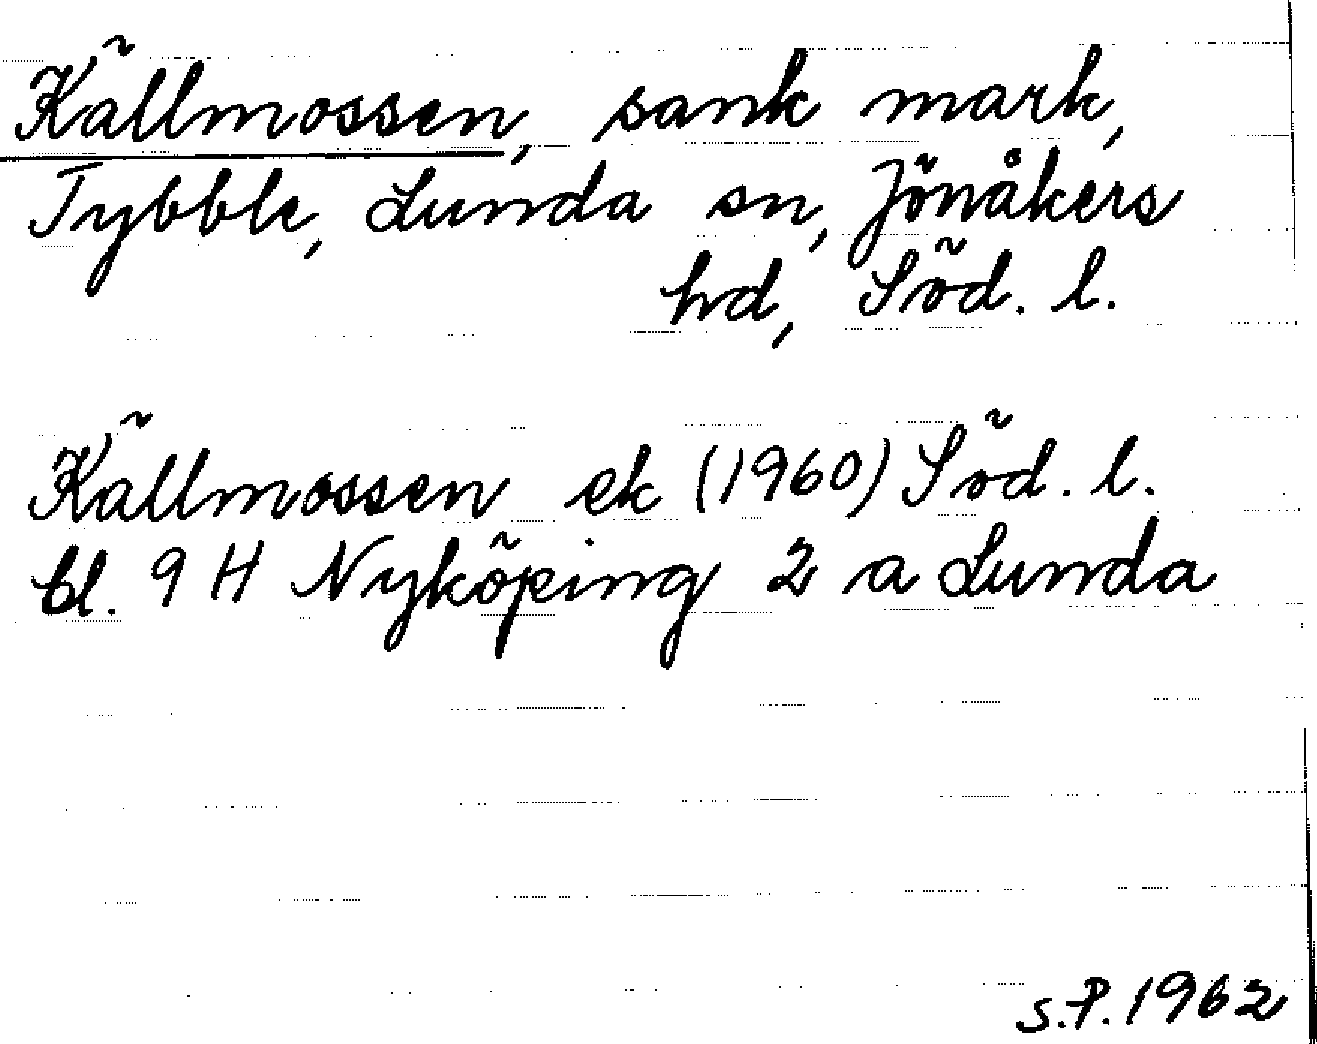 Källmossen, sank mark,
Tybble, Lunda sn, Jönåkers
hd, Söd. l.
Källmossen ek (1960) Söd. l.
bl. 9 H Nyköping 2 a Lunda
S.P. 1962